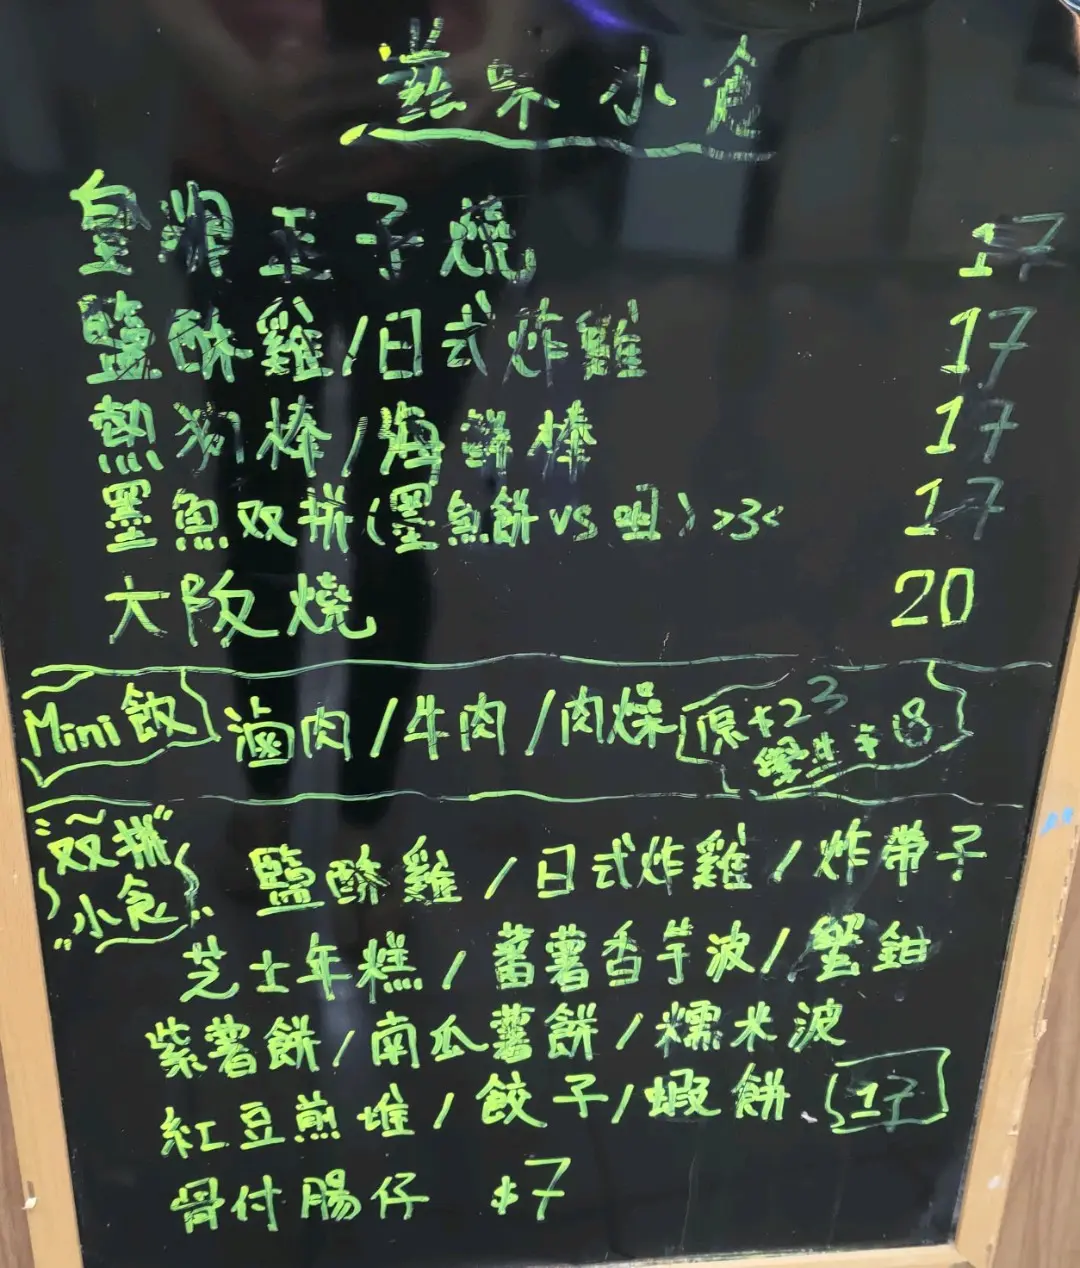 滋味小食
皇牌玉子燒 17
鹽酥雞/日式炸雞 17
熱狗棒/海鮮棒 17
墨魚双拼(墨魚餅vs咀)>3< 17
大阪燒 20
Mini飯 滷肉/牛肉/肉燥 原$23
學生$18
"双拼 鹽酥雞/日式炸雞/炸带子
小食" 芝士年糕/蕃薯香芋波/蟹鉗
紫薯餅/南瓜薯餅/糯米波
紅豆煎堆/餃子/蝦餅 17
骨付腸仔 $7